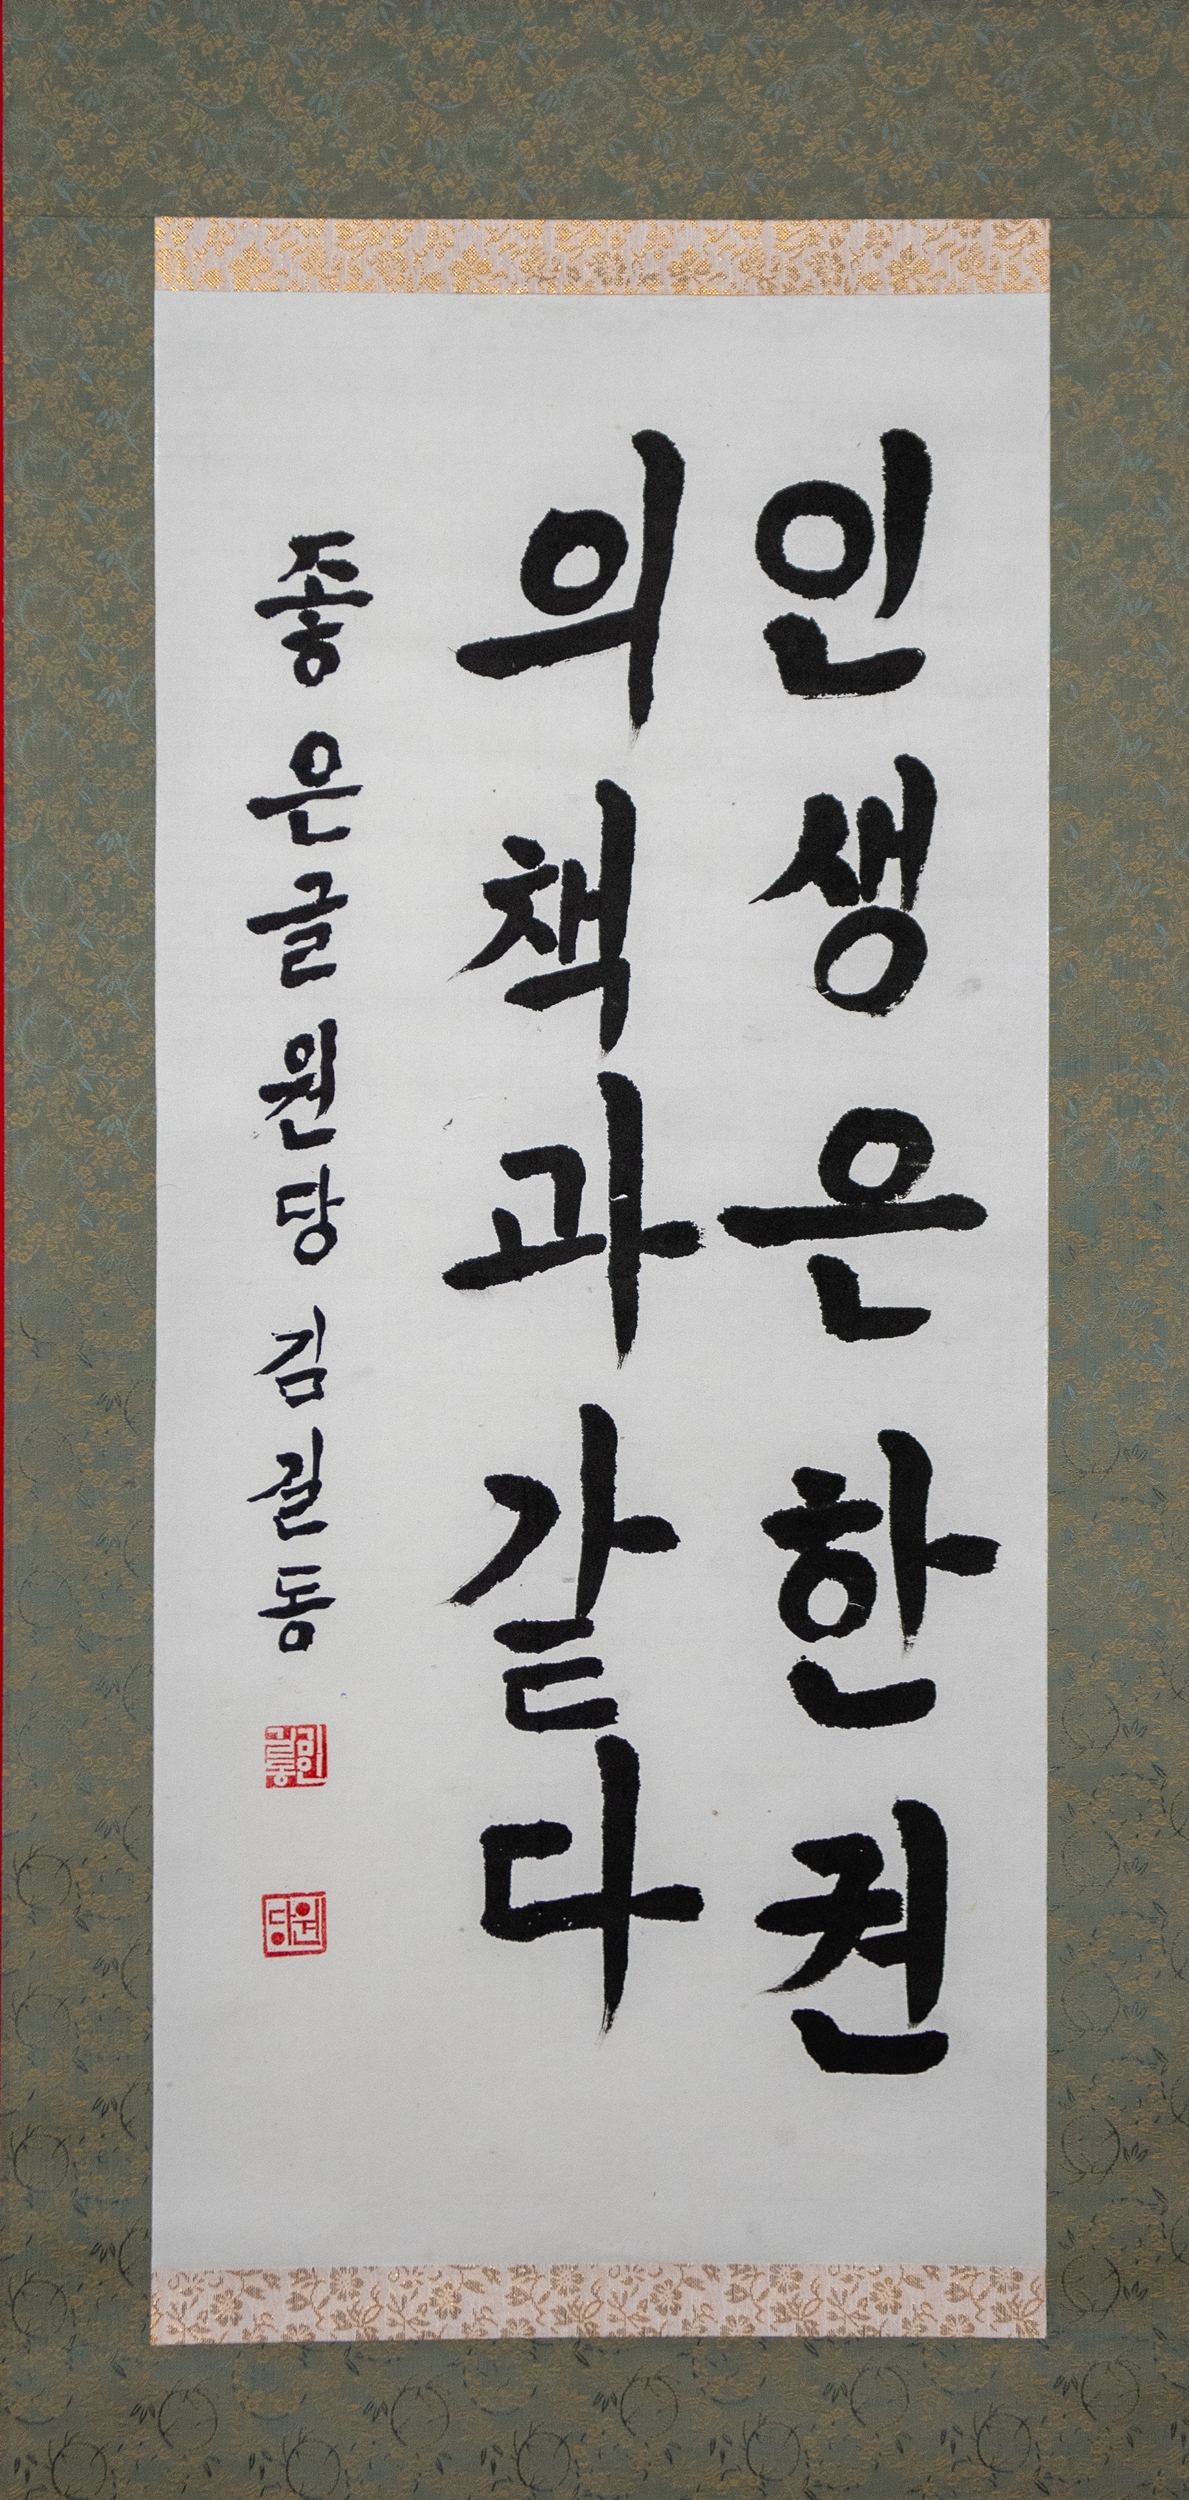 인생은한권
의책과같다
좋은글원당김길동
김인
길동
원
당